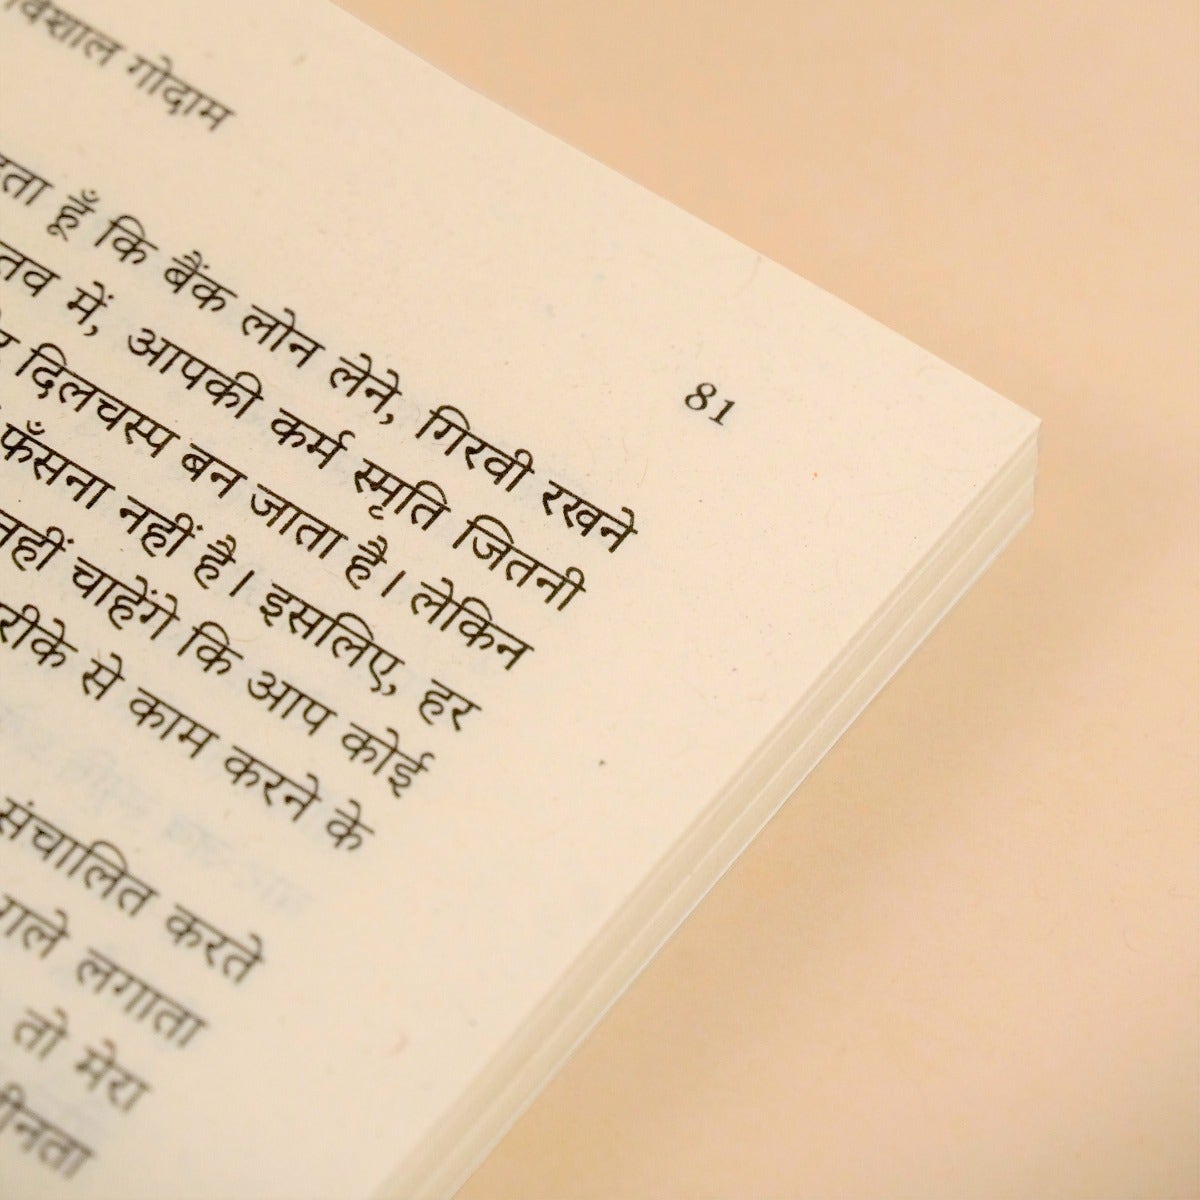 विशाल गोदाम
81
हूँ कि बैंक लोन लेने, गिरवी रखने
में, आपकी कर्म स्मृति जितनी
दिलचस्प बन जाता है। लेकिन
फँसना नहीं है। इसलिए, हर
नहीं चाहेंगे कि आप कोई
से काम करने के
संचालित करते
गले लगाता
तो मेरा